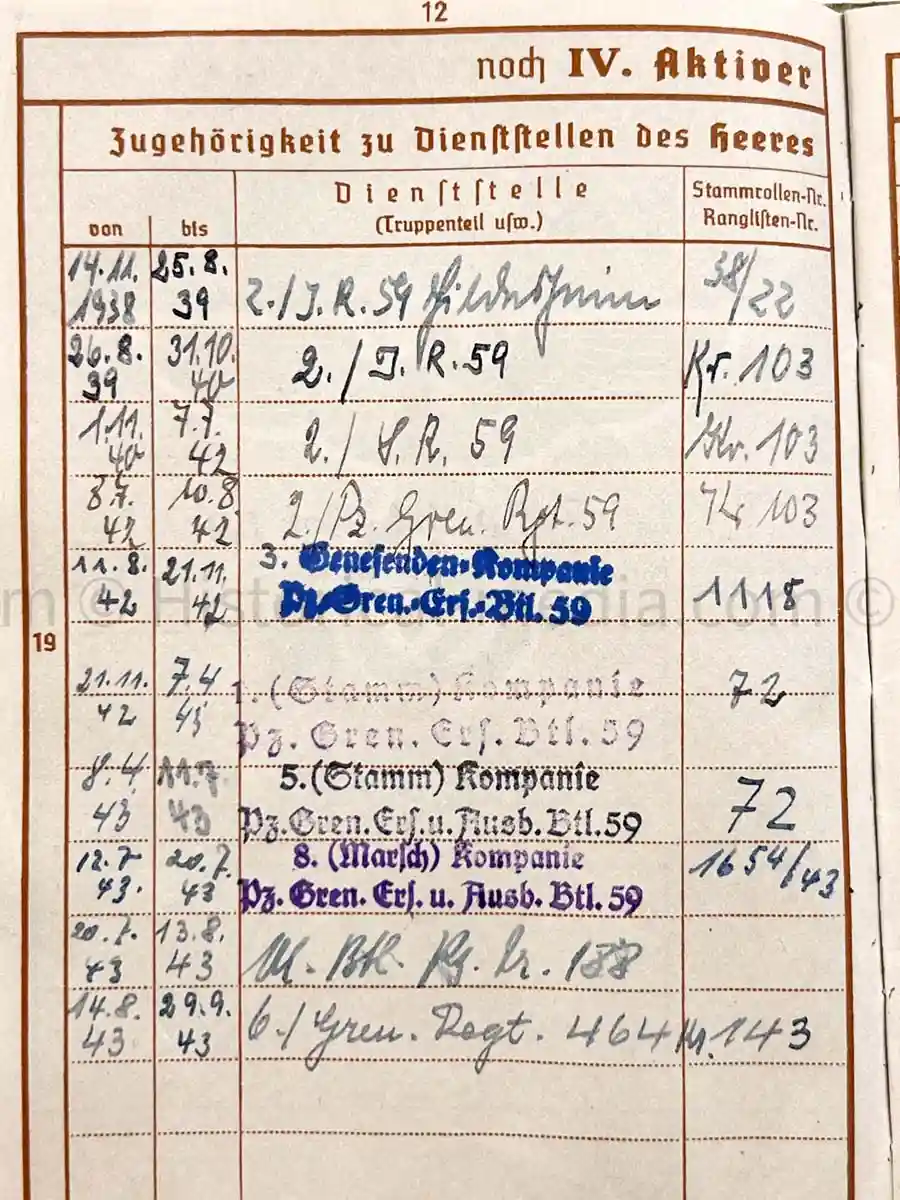 12
noch IV. Aktiver
Zugehörigkeit zu Dienststellen des Heeres
von bis Dienststelle (Truppenteil usw.) Stammrollen-Nr. Ranglisten-Nr.
19
14.11. 25.8. 38/22
1938 39 2./J.R. 59 Hildesheim
26.8. 31.10. 2./J.R. 59 Kr. 103
39 40
1.11. 7.7. 2./S.R. 59 Kr. 103
40 42
8.7. 10.8 2./Pz. Gren. Rgt. 59 Kr 103
42 42
11.8. 21.11. 3. Genesenden-Kompanie 1118
42 42 Pz.-Gren.-Ers.-Btl. 59
21.11. 7.4 1. (Stamm) Kompanie 72
42 43 Pz. Gren. Ers. Btl. 59
8.4 11.7. 5. (Stamm) Kompanie 72
43 43 Pz. Gren. Ers. u. Ausb. Btl. 59
12.7 20.7. 8. (Marsch) Kompanie 1654/43
43. 43 Pz. Gren. Ers. u. Ausb. Btl. 59
20.7. 13.8.
43 43 M. Btl. 188
14.8. 29.9. 6./Gren. Regt. 464 Kr. 143
43 43